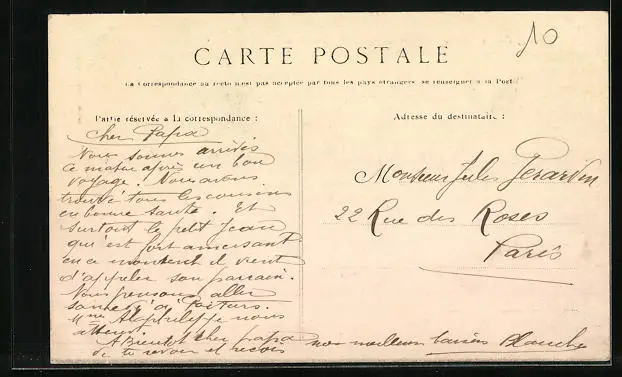 10
CARTE POSTALE
La Correspondance au recto n'est pas acceptée par tous les pays étrangers, se renseigner à la Poste
Partie réservée à la correspondance :
Cher Papa
Nous sommes arrivés
ce matin après un bon
voyage. Nous avons
trouvé tous les cousins
en bonne santé. Et
surtout le petit Jean
qui est fort amusant
en ce moment il vient
d'appeler son parrain.
Nous pensons aller
à Poitiers.
Mme nous
attend.
A Bientôt cher papa
de te revoir et reçois
nos meilleurs baisers Blanche
Adresse du destinataire :
Monsieur Jules Gérardin
22 Rue des Roses
Paris